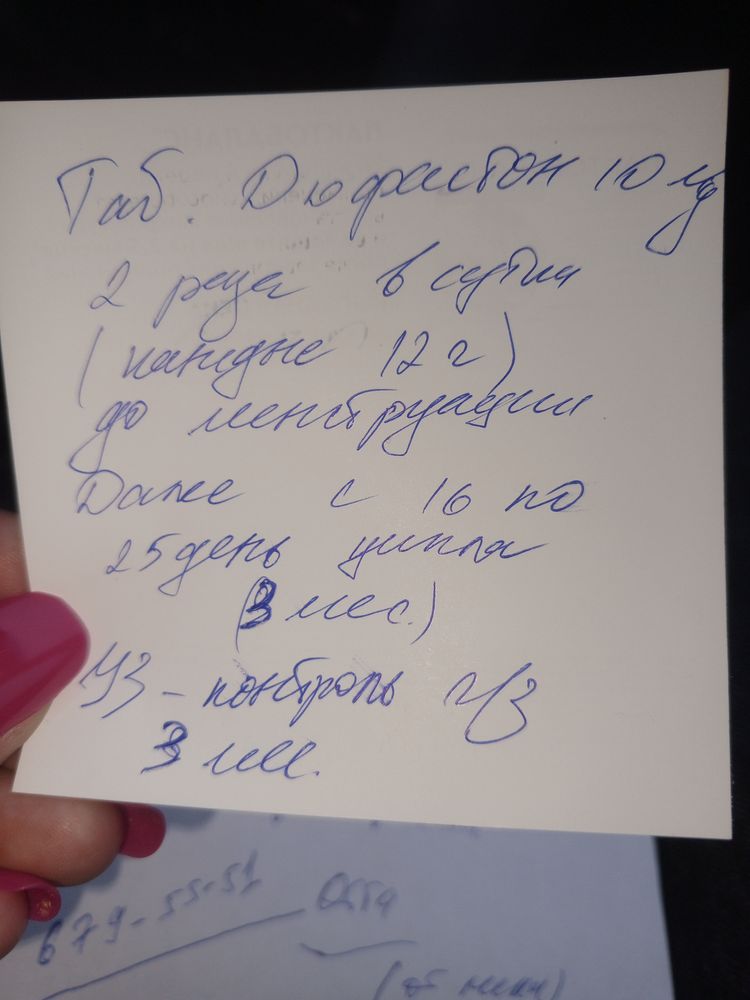 Таб. Дюфастон 10 мг
2 раза в сутки
(каждые 12 г)
до менструации
Далее с 16 по
25 день цикла
(3 мес.)
УЗ - контроль ч/з
3 мес.
679-55-51